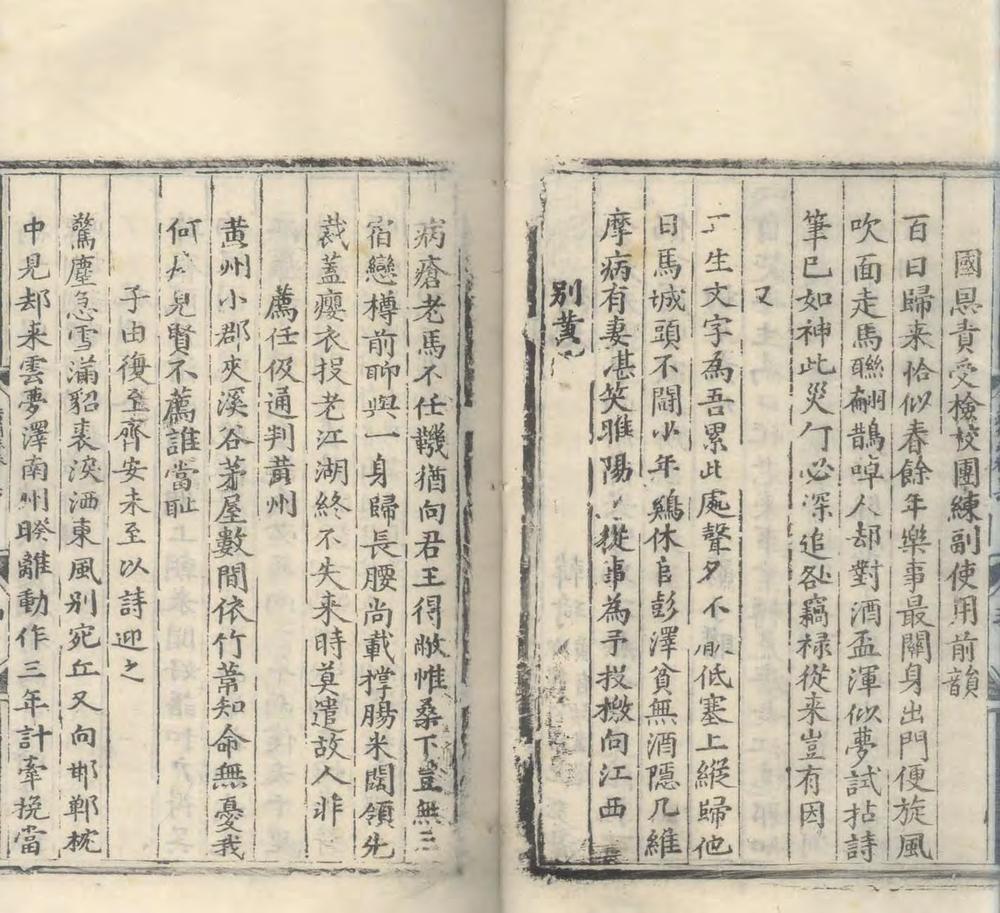 國恩責受檢校團練副使用前韻
百日歸来恰似春餘年樂事最關身出門便旋風
吹面走馬聯翩鵲啅人却對酒盃渾似夢試拈詩
筆已如神此災何必深追咎竊禄從来豈有因
又
生文字為吾累此處聲名不厭低塞上縱歸他
日馬城頭不鬪少年鷄休官彭澤貧無酒隱几維
摩病有妻堪笑睢陽從事為予投檄向江西
别黄
病瘡老馬不任鞿猶向君王得敝帷桑下豈無三
宿戀樽前聊與一身歸長腰尚載撑腸米闊領先
裁蓋癭衣投老江湖終不失来時莫遣故人非
薦任伋通判黄州
黄州小郡夾溪谷茅屋數間依竹葦知命無憂我
何兒賢不薦誰當耻
子由復至齊安未至以詩迎之
驚塵急雪滿貂裘淚洒東風别宛丘又向邯鄲枕
中見却来雲夢澤南州暌離動作三年計牽挽當